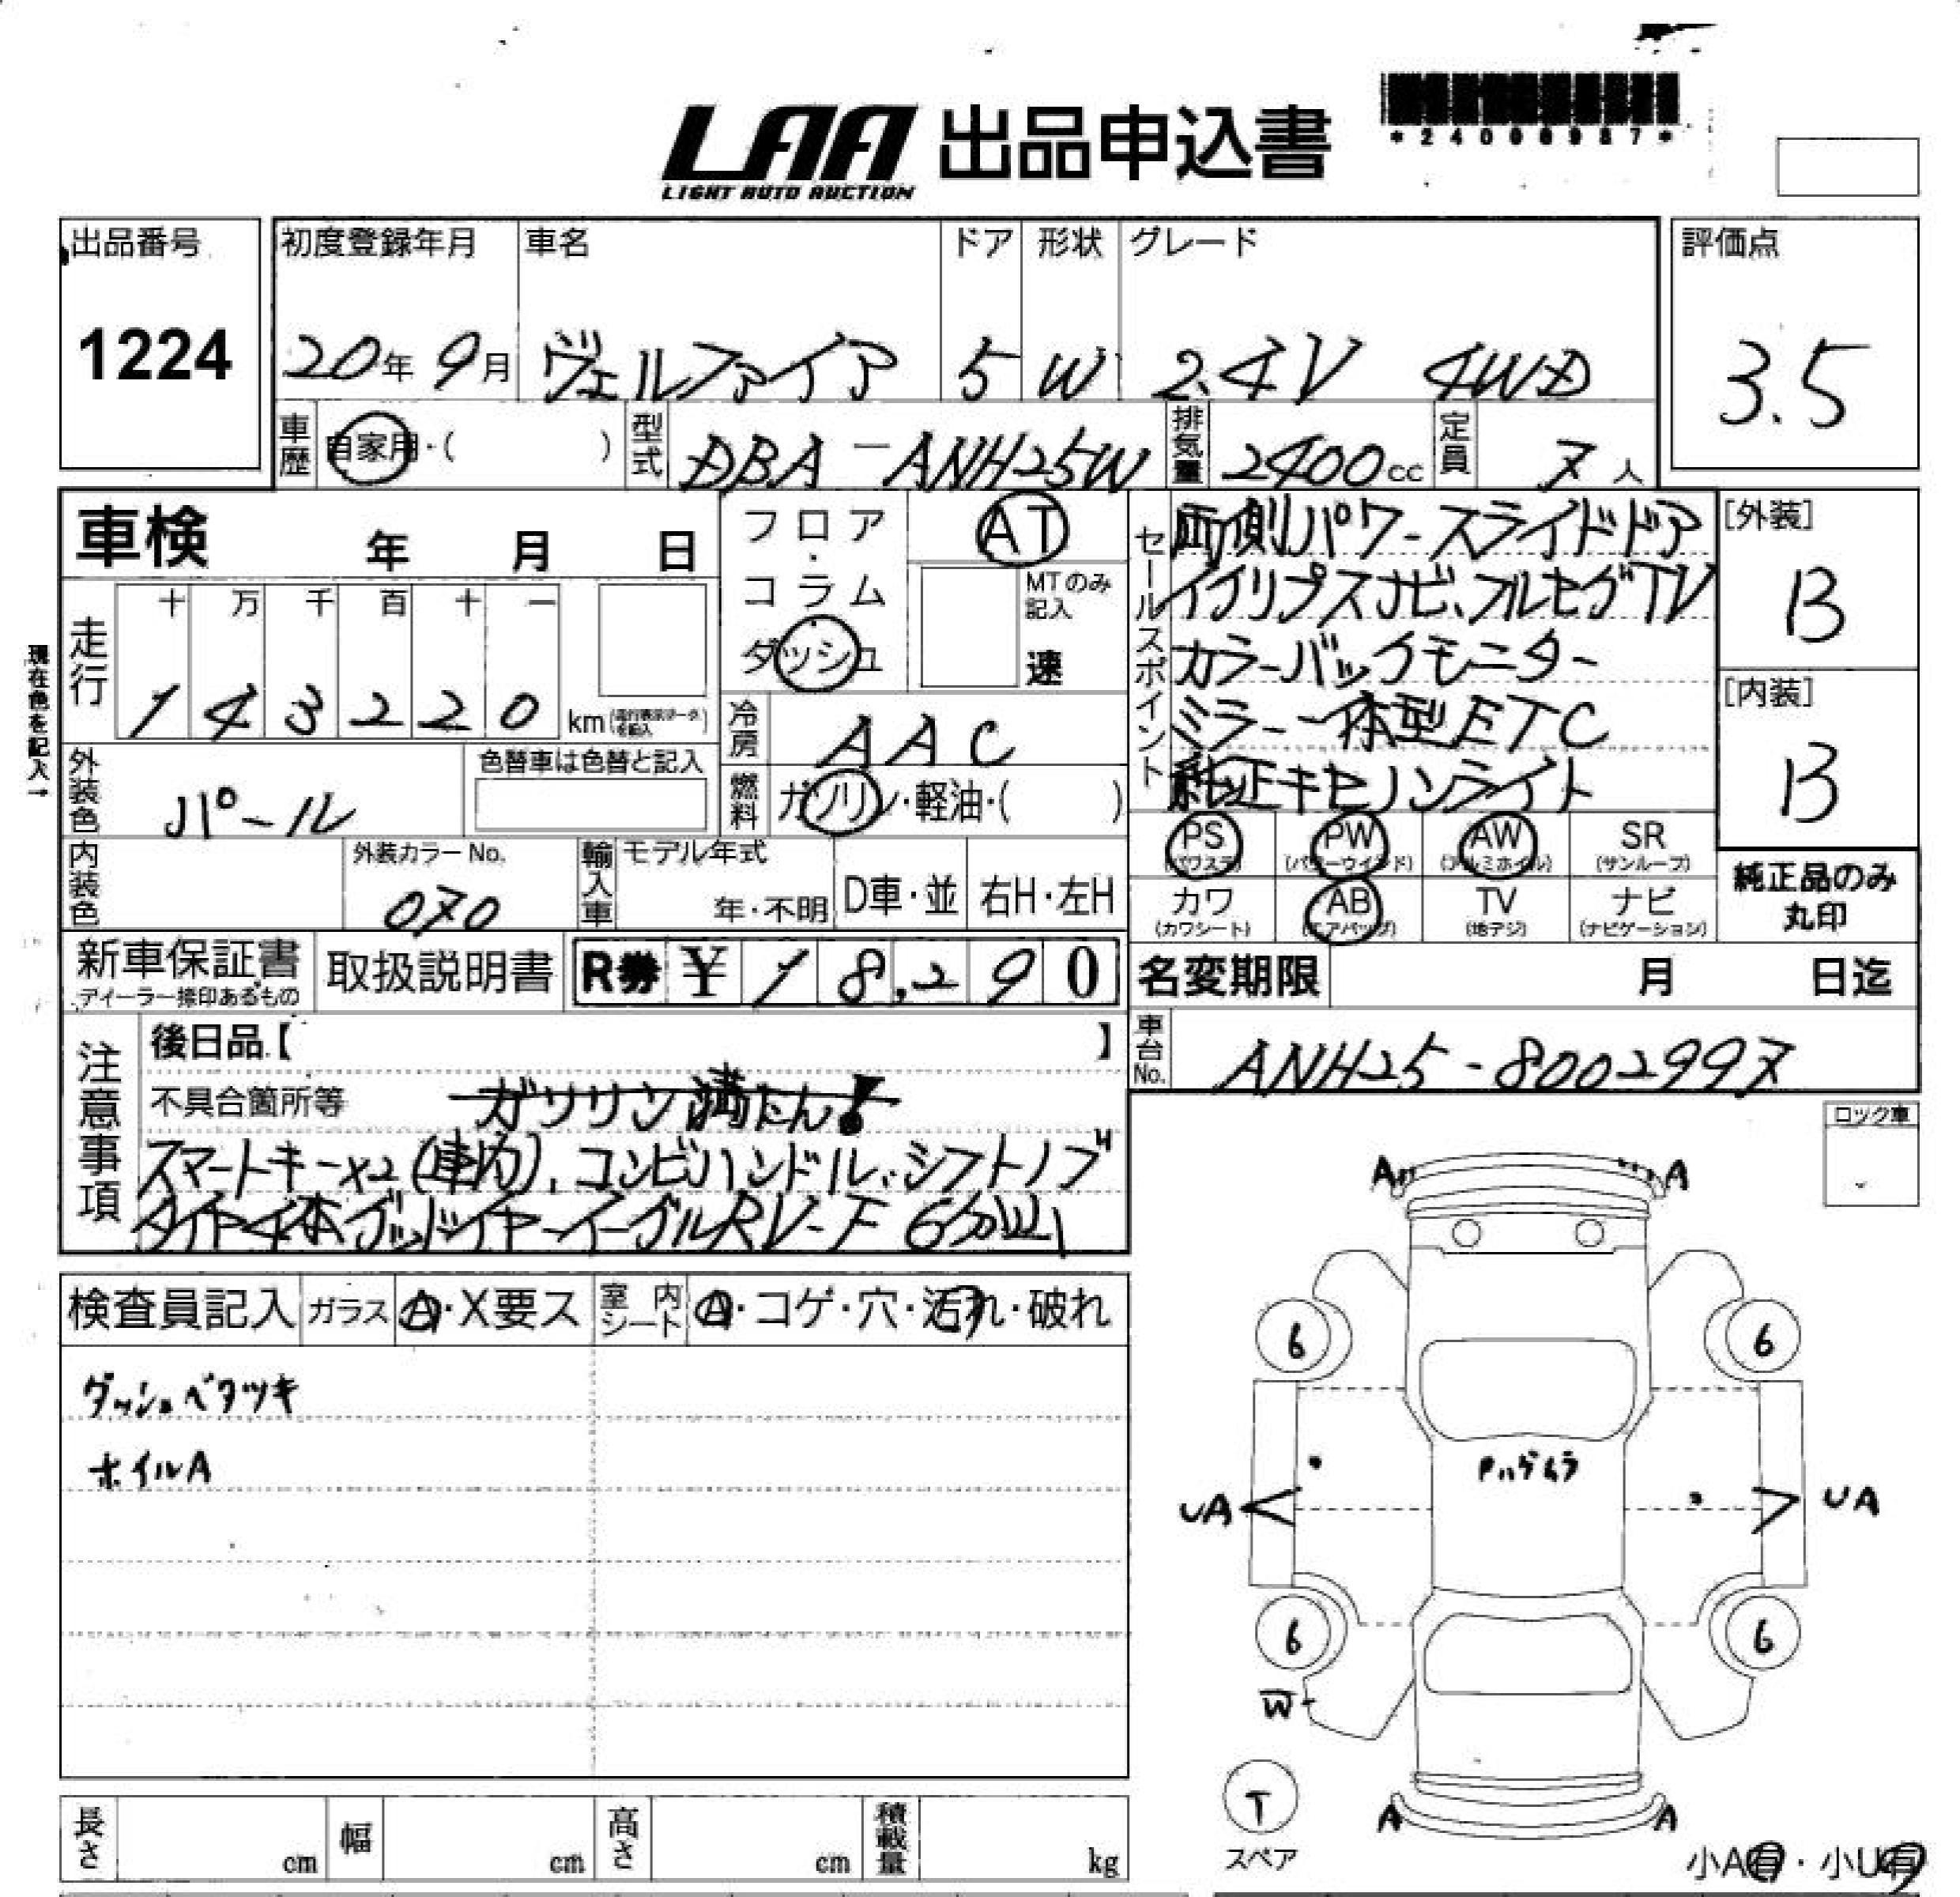 LAA 出品申込書
LIGHT AUTO AUCTION
出品番号
1224
初度登録年月
20年 9月
車名
ヴェルファイア
ドア
5
形状
W
グレード
2.4V 4WD
評価点
3.5
車歴 自家用・( )
型式 DBA-ANH25W
排気量 2400cc
定員 7人
車検 年 月 日
現在色を記入→
走行
十 万 千 百 十 一
1 4 3 2 2 0 km
フロア・コラム・ダッシュ
AT
MTのみ記入
速
冷房 AAC
燃料 ガソリン・軽油・( )
外装色 パール
色替車は色替と記入
内装色
外装カラーNo.
070
輸入車
モデル年式
年・不明
D車・並
右H・左H
セールスポイント
両側パワースライドドア
イクリプスナビ、フルセグTV
カラーバックモニター
ミラー一体型ETC
純正キセノンライト
[外装]
B
[内装]
B
PS (パワステ)
PW (パワーウインド)
AW (アルミホイル)
SR (サンルーフ)
カワ (カワシート)
AB (エアバッグ)
TV (地デジ)
ナビ (ナビゲーション)
純正品のみ
丸印
新車保証書
ディーラー捺印あるもの
取扱説明書
R券 ¥ 18,290
名変期限 月 日迄
車台No. ANH25-8002997
注意事項
後日品【 】
不具合箇所等 ガソリン満たん!
スマートキー×2(車内)、コンビハンドル・シフトノブ
タイヤ4本グッドイヤーイーグルRV-F
ロック車
検査員記入
ガラス A・X要ス
室内シート A・コゲ・穴・汚れ・破れ
ダッシュベタツキ
ホイルA
A A
6 6
ハゲムラ
UA UA
6 6
W
T
スペア
A A
小A有・小U有
長さ cm
幅 cm
高さ cm
積載量 kg